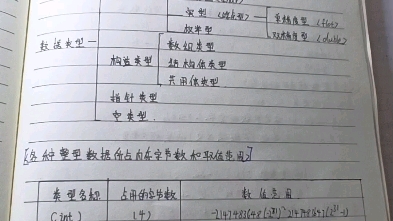 实型 (浮点型)
单精度型 (float)
双精度型 (double)
枚举型
数据类型
数组类型
构造类型
结构体类型
共用体类型
指针类型
空类型
[各种整型数据所占内存字节数和取值范围]
类型名称 占用的字节数 数值范围
(int) (4) -2147483648 (-2³¹) ~ 2147483647 (2³¹-1)